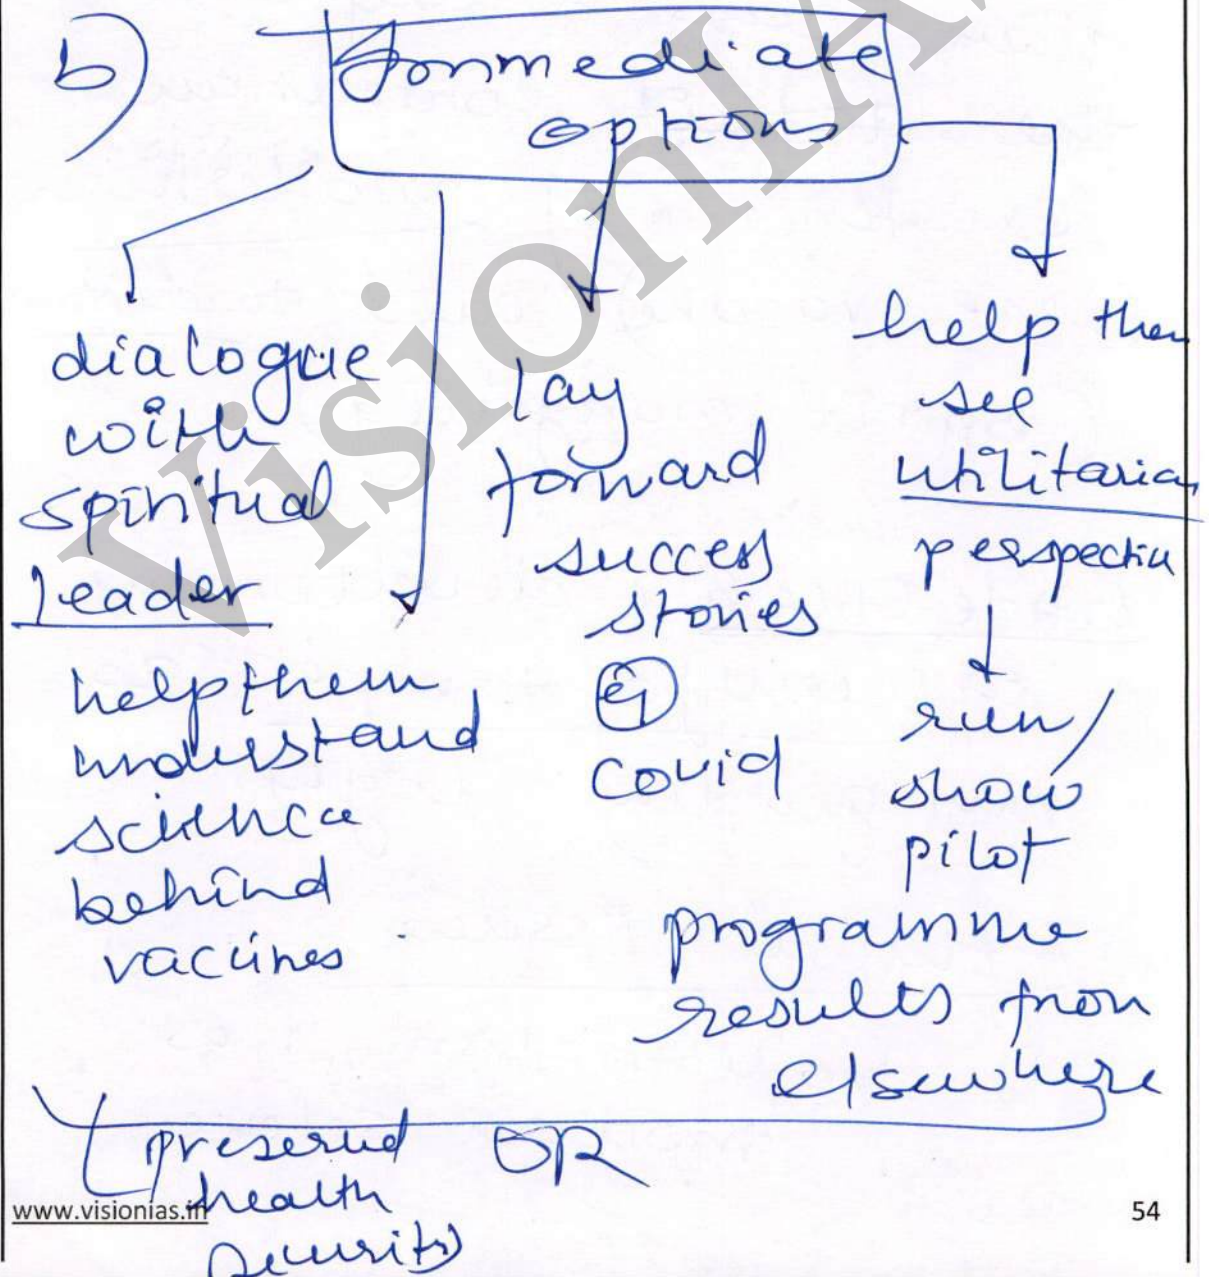 b)
Immediate
options
dialogue
with
spiritual
leader
help them
understand
science
behind
vaccines
lay
forward
success
stories
eg
covid
help them
see
utilitarian
perspective
run/
show
pilot
programme
results from
elsewhere
preserved OR
health
security
www.visionias.in
54
VisionIA